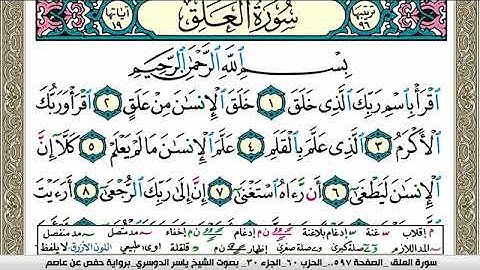 ترتيبها ٩٦ سُورَةُ الْعَلَقِ آياتها ١٩
بِسْمِ اللَّهِ الرَّحْمَٰنِ الرَّحِيمِ
ٱقْرَأْ بِٱسْمِ رَبِّكَ ٱلَّذِى خَلَقَ ١ خَلَقَ ٱلْإِنسَٰنَ مِنْ عَلَقٍ ٢ ٱقْرَأْ وَرَبُّكَ
ٱلْأَكْرَمُ ٣ ٱلَّذِى عَلَّمَ بِٱلْقَلَمِ ٤ عَلَّمَ ٱلْإِنسَٰنَ مَا لَمْ يَعْلَمْ ٥ كَلَّآ إِنَّ
ٱلْإِنسَٰنَ لَيَطْغَىٰٓ ٦ أَن رَّءَاهُ ٱسْتَغْنَىٰٓ ٧ إِنَّ إِلَىٰ رَبِّكَ ٱلرُّجْعَىٰٓ ٨ أَرَءَيْتَ
م إقلاب غنة إدغام بلاغنة إدغام إخفاء مد متصل مد منفصل
المد اللازم صلة كبرى صلة صغرى إظهار قلقلة طبيعي اللون الأزرق لا يلفظ
سورة العلق ـ الصفحة ٥٩٧.. الحزب ٦٠ ـ الجزء ٣٠ ـ بصوت الشيخ ياسر الدوسري ـ برواية حفص عن عاصم